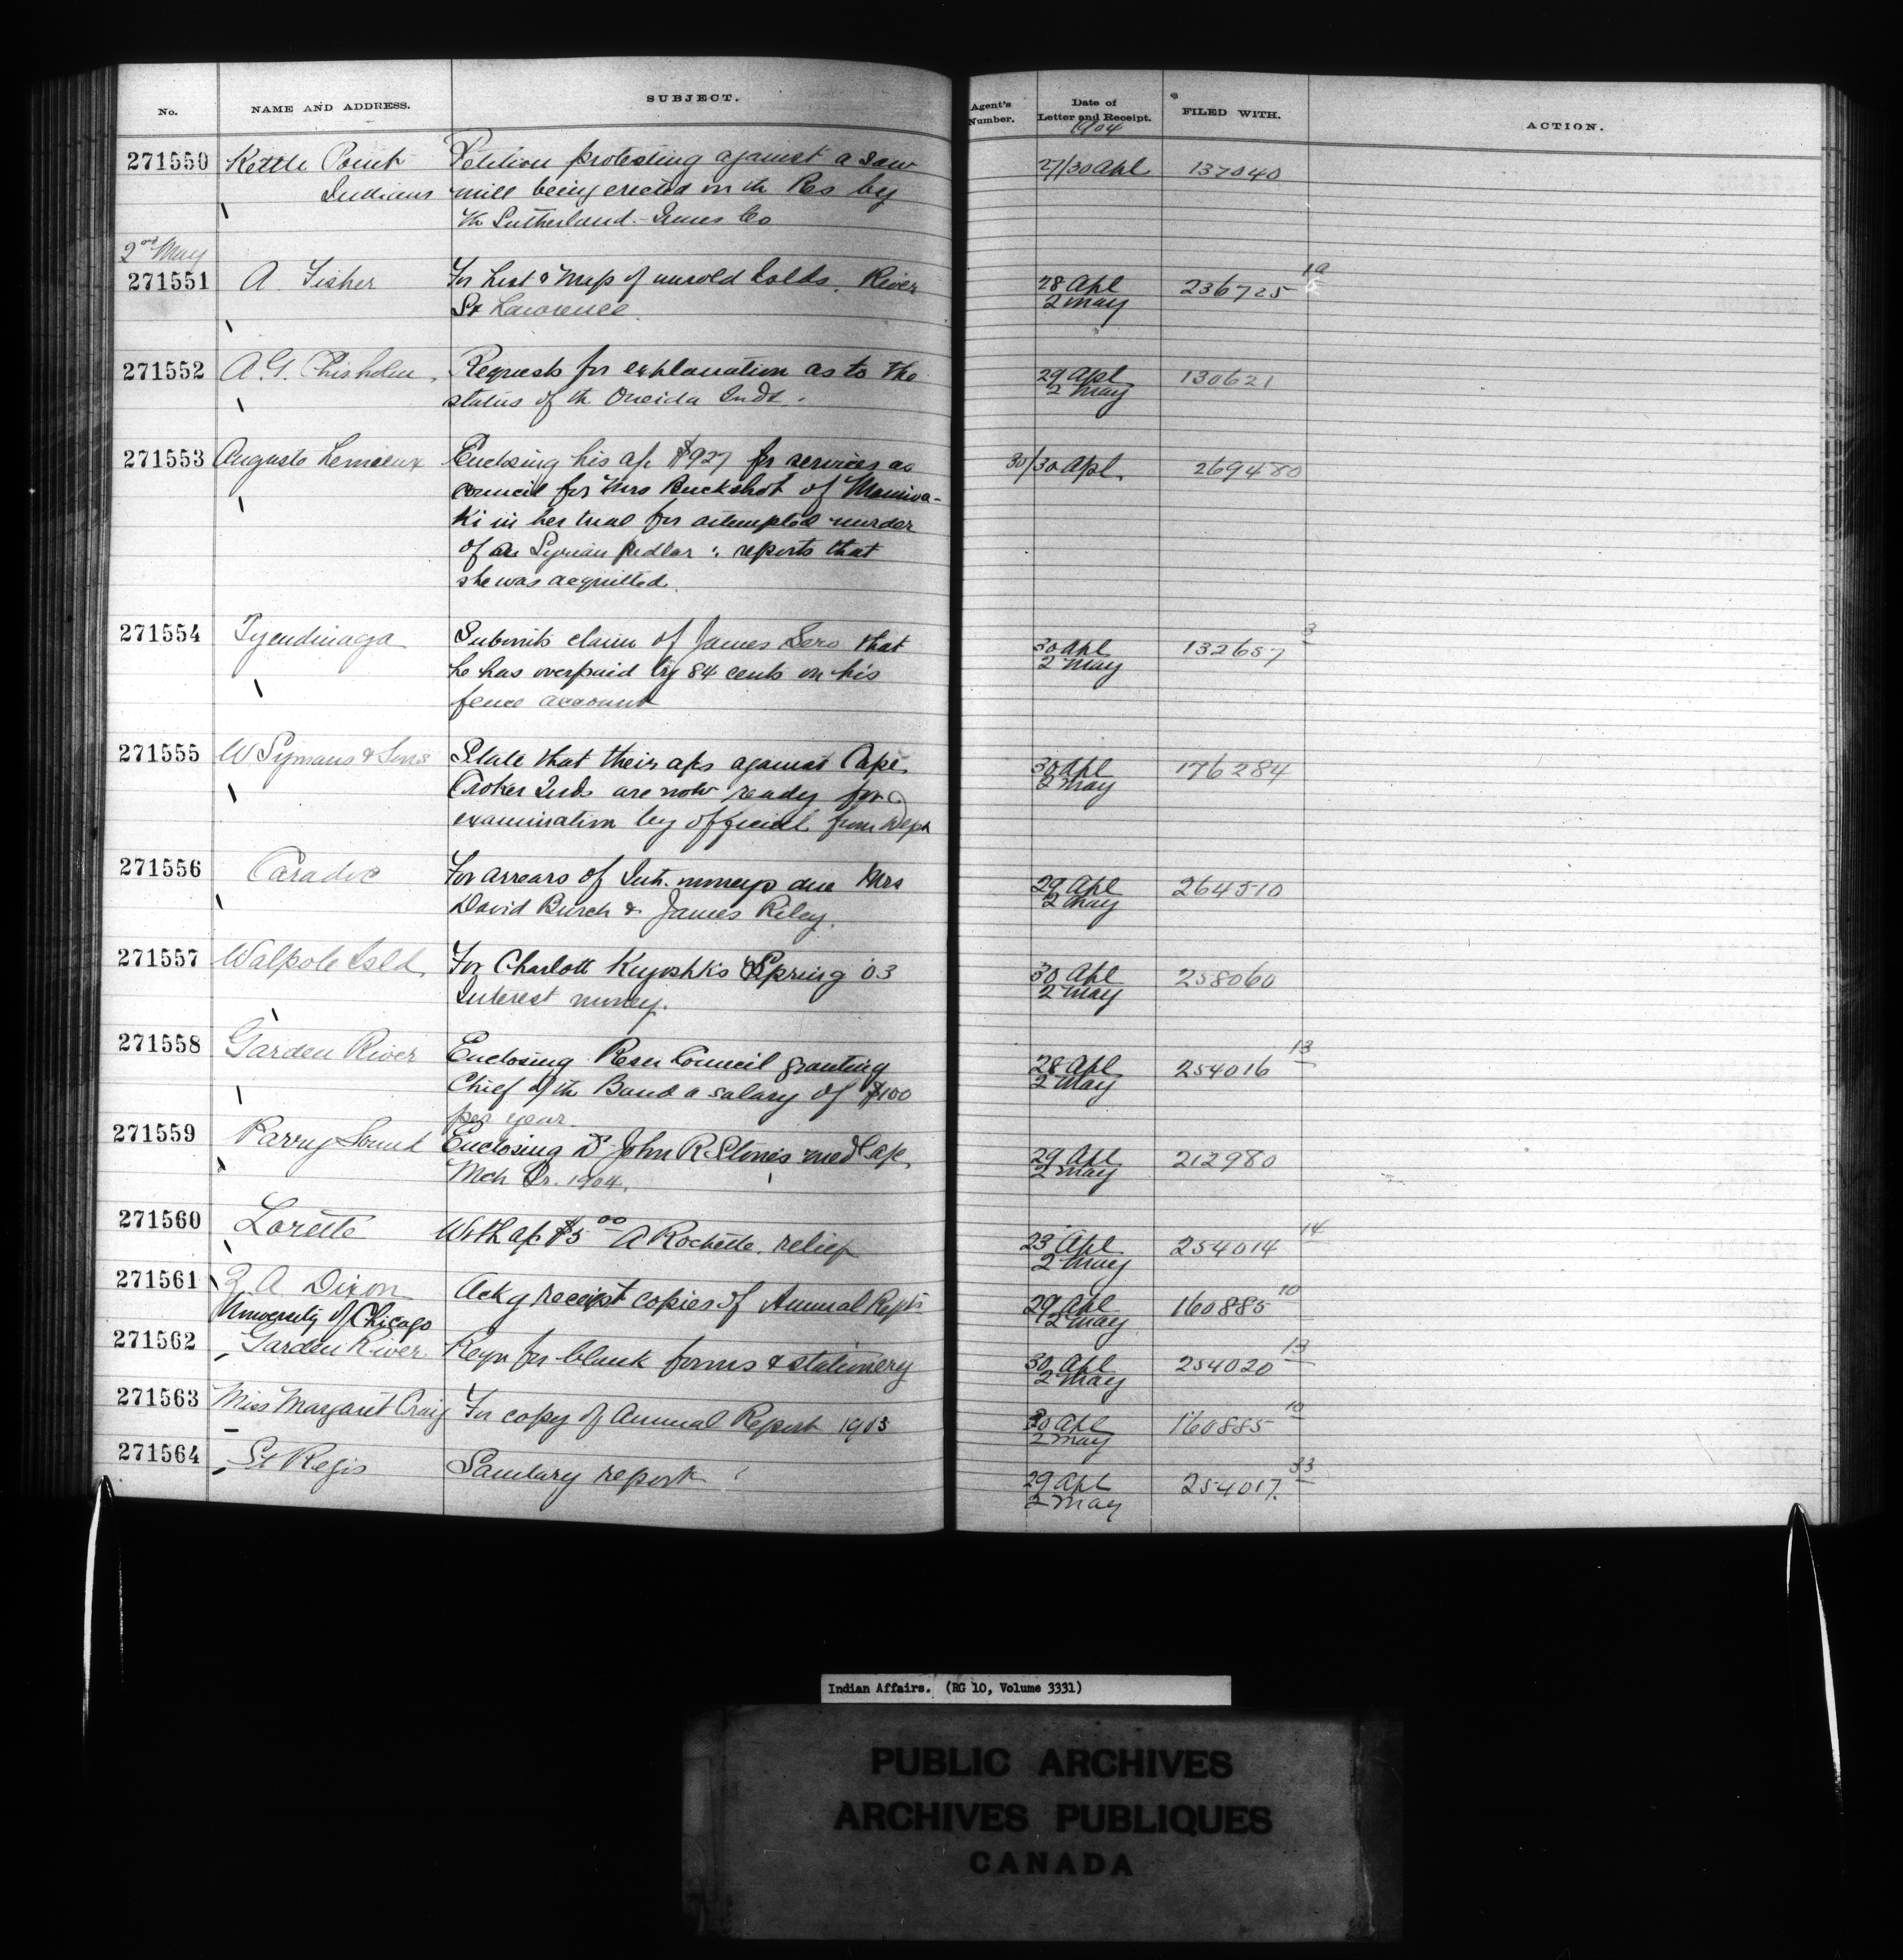 No. NAME AND ADDRESS. SUBJECT. Agent's Number. Date of Letter and Receipt. FILED WITH. ACTION.
1904
271550 Kettle Point Petition protesting against a saw 27/30 Apl 137040
Indians mill being erected on the Res by
the Sutherland-Innes Co
2nd May
271551 A. Fisher For List & Map of unsold Islds. River 28 Apl 236725
St Lawrence 2 May
271552 A. G. Chisholm, Requests for explanation as to the 29 Apl 130621
status of the Oneida Inds. 2 May
271553 Auguste Lemieux Enclosing his a/c $927 for services as 30/30 Apl. 269480
council for Mrs Buckshot of Maniwa-
Ki in her trial for attempted murder
of a Syrian pedlar: reports that
she was acquitted.
271554 Tyendinaga Submits claim of James Sero that 30 Apl 132657 3
he has overpaid by 84 cents on his 2 May
fence account
271555 W Symans & Sons State that their a/cs against Cape 30 Apl 176284
Croker Inds are now ready for 2 May
examination by official from Dept
271556 Caradoc For arrears of Int. moneys due Mrs 29 Apl 264510
David Burch & James Riley. 2 May
271557 Walpole Isld. For Charlott Spring '03 30 Apl 258060
Interest money. 2 May
271558 Garden River Enclosing Resn Council granting 28 Apl 254016 13
Chief of the Band a salary of $100 2 May
per year.
271559 Parry Sound Enclosing Dr John R Stone's med a/c 29 Apl 212980
Mch Qr. 1904. 2 May
271560 Lorette With a/c $5.00 A Rochette, relief 23 Apl 254014 14
2 May
271561 A Dixon Ackg receipt copies of Annual Repts 29 Apl 160885 10
University of Chicago 2 May
271562 Garden River Reqn for blank forms & stationery 30 Apl 254020 13
2 May
271563 Miss Margaret Craig For copy of Annual Report 1903 30 Apl 160885 10
2 May
271564 St Regis Sanitary report 29 Apl 254017. 33
2 May
Indian Affairs. (RG 10, Volume 3331)
PUBLIC ARCHIVES
ARCHIVES PUBLIQUES
CANADA